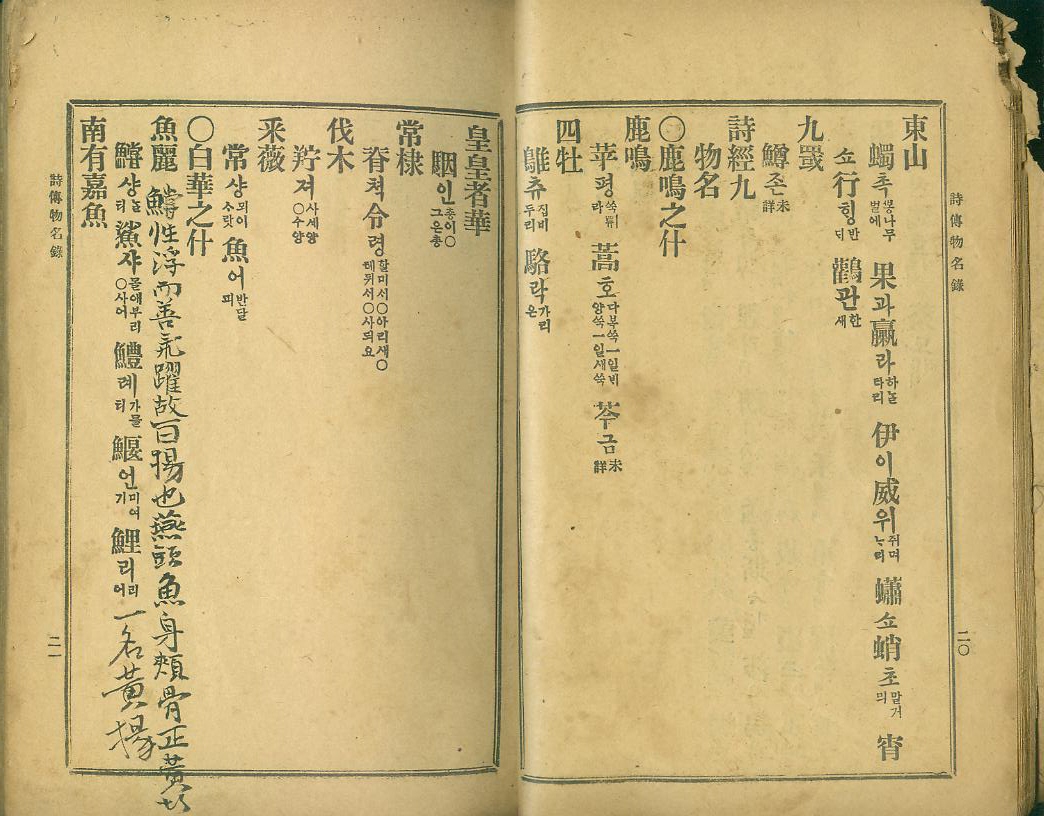 詩傳物名錄
二〇
東山
蠋촉뽕나무벌에 果과蠃라하눌타리 伊이威위쥐며느리 蠨쇼蛸초말거믜 宵
쇼行힝반디 鸛관한새
九罭
鱒존未詳
詩經九
物名
〇鹿鳴之什
鹿鳴
苹평쑥類라 蒿호다북쑥一일비양쑥一일새쑥 芩금未詳
四牡
鵻츄집비두리 駱락가리온
皇皇者華
駰인총이〇그은총
常棣
脊쳑令령할미새〇아리새〇
伐木
羜져사세양〇수양
采薇
常샹 魚어반달피
〇白華之什
魚麗 鱨性浮而善飛躍故曰揚也燕頭魚身頰骨正黃
鱨샹 鯊사몰애부리〇사어 鱧례가믈티 鰋언미여기 鯉리리어 一名黃揚
南有嘉魚
詩傳物名錄
二一